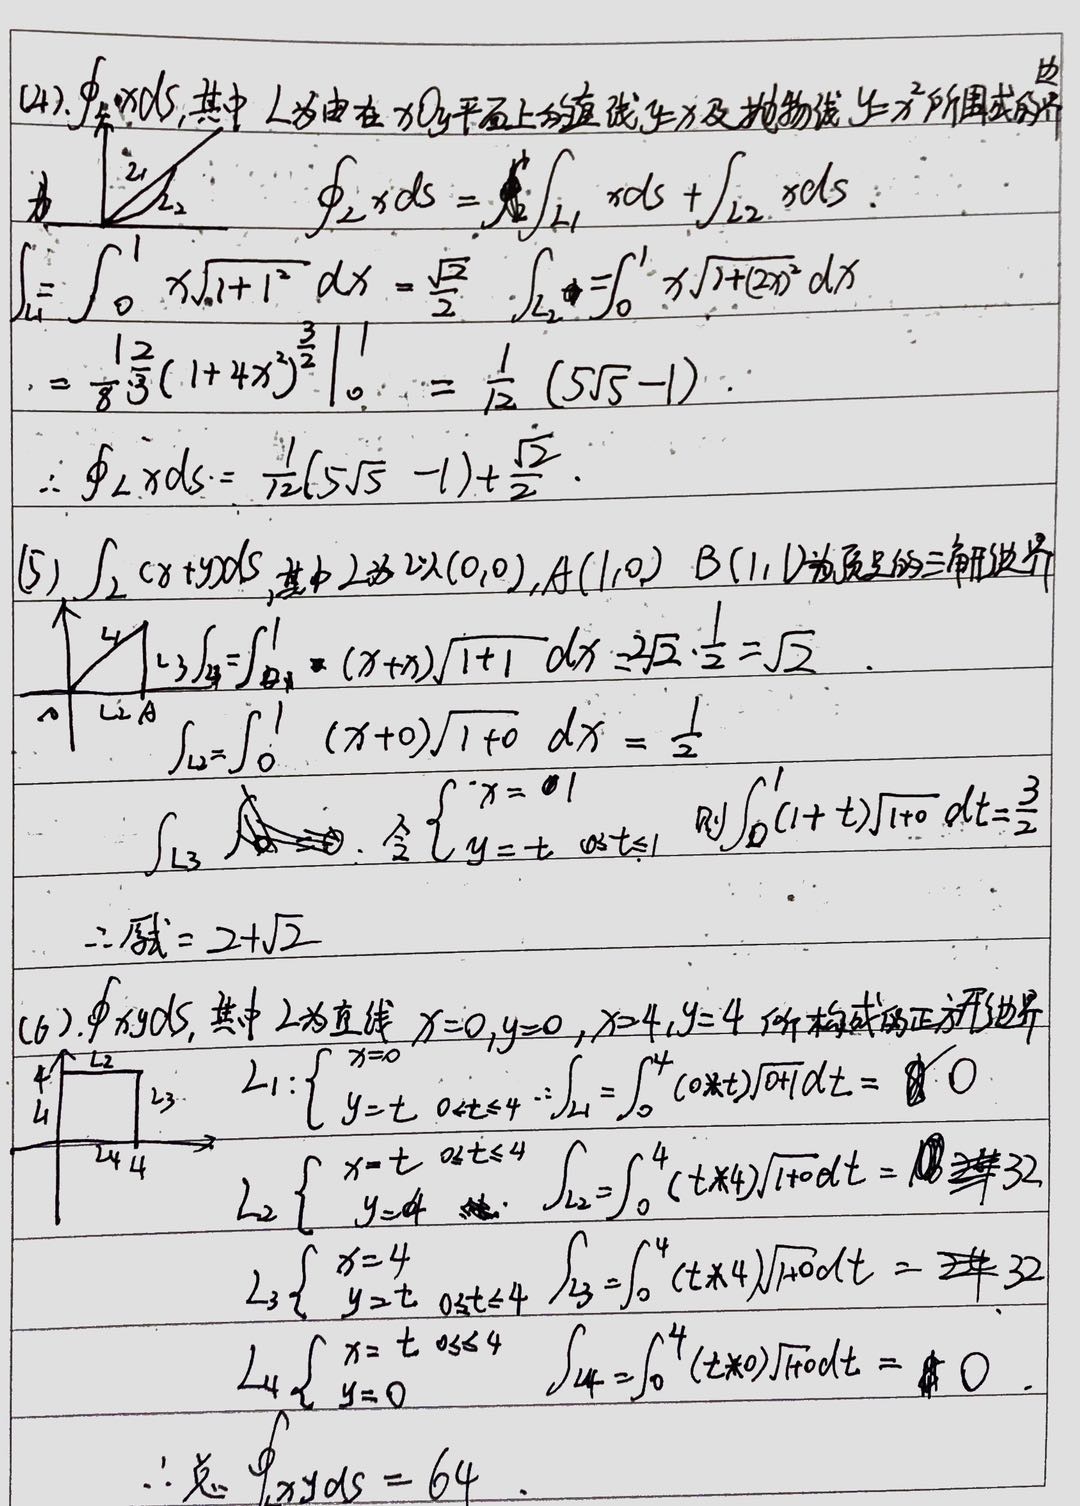 (4). ∮_L xds, 其中 L为由在 xOy平面上的直线 y=x 及抛物线 y=x² 所围成的边界
L₁ L₂ ∮_L xds = ∫_{L1} xds + ∫_{L2} xds.
∫_{L1} = ∫₀¹ x√(1+1²) dx = √2/2 ∫_{L2} = ∫₀¹ x√(1+(2x)²) dx
= 1/8·2/3 (1+4x²)^{3/2} |₀¹ = 1/12 (5√5-1).
∴ ∮_L xds = 1/12 (5√5 -1) + √2/2.
(5) ∫_L (x+y)ds, 其中 L为以(0,0), A(1,0) B(1,1)为顶点的三角形边界
L₁ L3 ∫_{L1} = ∫₀¹ (x+x)√(1+1) dx = 2√2·1/2 = √2.
L2 A ∫_{L2} = ∫₀¹ (x+0)√(1+0) dx = 1/2
∫_{L3} . 令 { x=1 y=t 0≤t≤1 则 ∫₀¹ (1+t)√(1+0) dt = 3/2
∴ 原式 = 2+√2
(6). ∮xyds, 其中 L为直线 x=0, y=0, x=4, y=4 所构成的正方形边界
4 L2 L1 L3 L4 4 L₁: { x=0 y=t 0≤t≤4 ∴ ∫_{L1} = ∫₀⁴ (0*t)√(0+1) dt = 0
L₂ { x=t 0≤t≤4 y=4 ∫_{L2} = ∫₀⁴ (t*4)√(1+0) dt = 32
L₃ { x=4 y=t 0≤t≤4 ∫_{L3} = ∫₀⁴ (t*4)√(1+0) dt = 32
L₄ { x=t 0≤≤4 y=0 ∫_{L4} = ∫₀⁴ (t*0)√(1+0) dt = 0.
∴ 总 ∮_L xyds = 64.